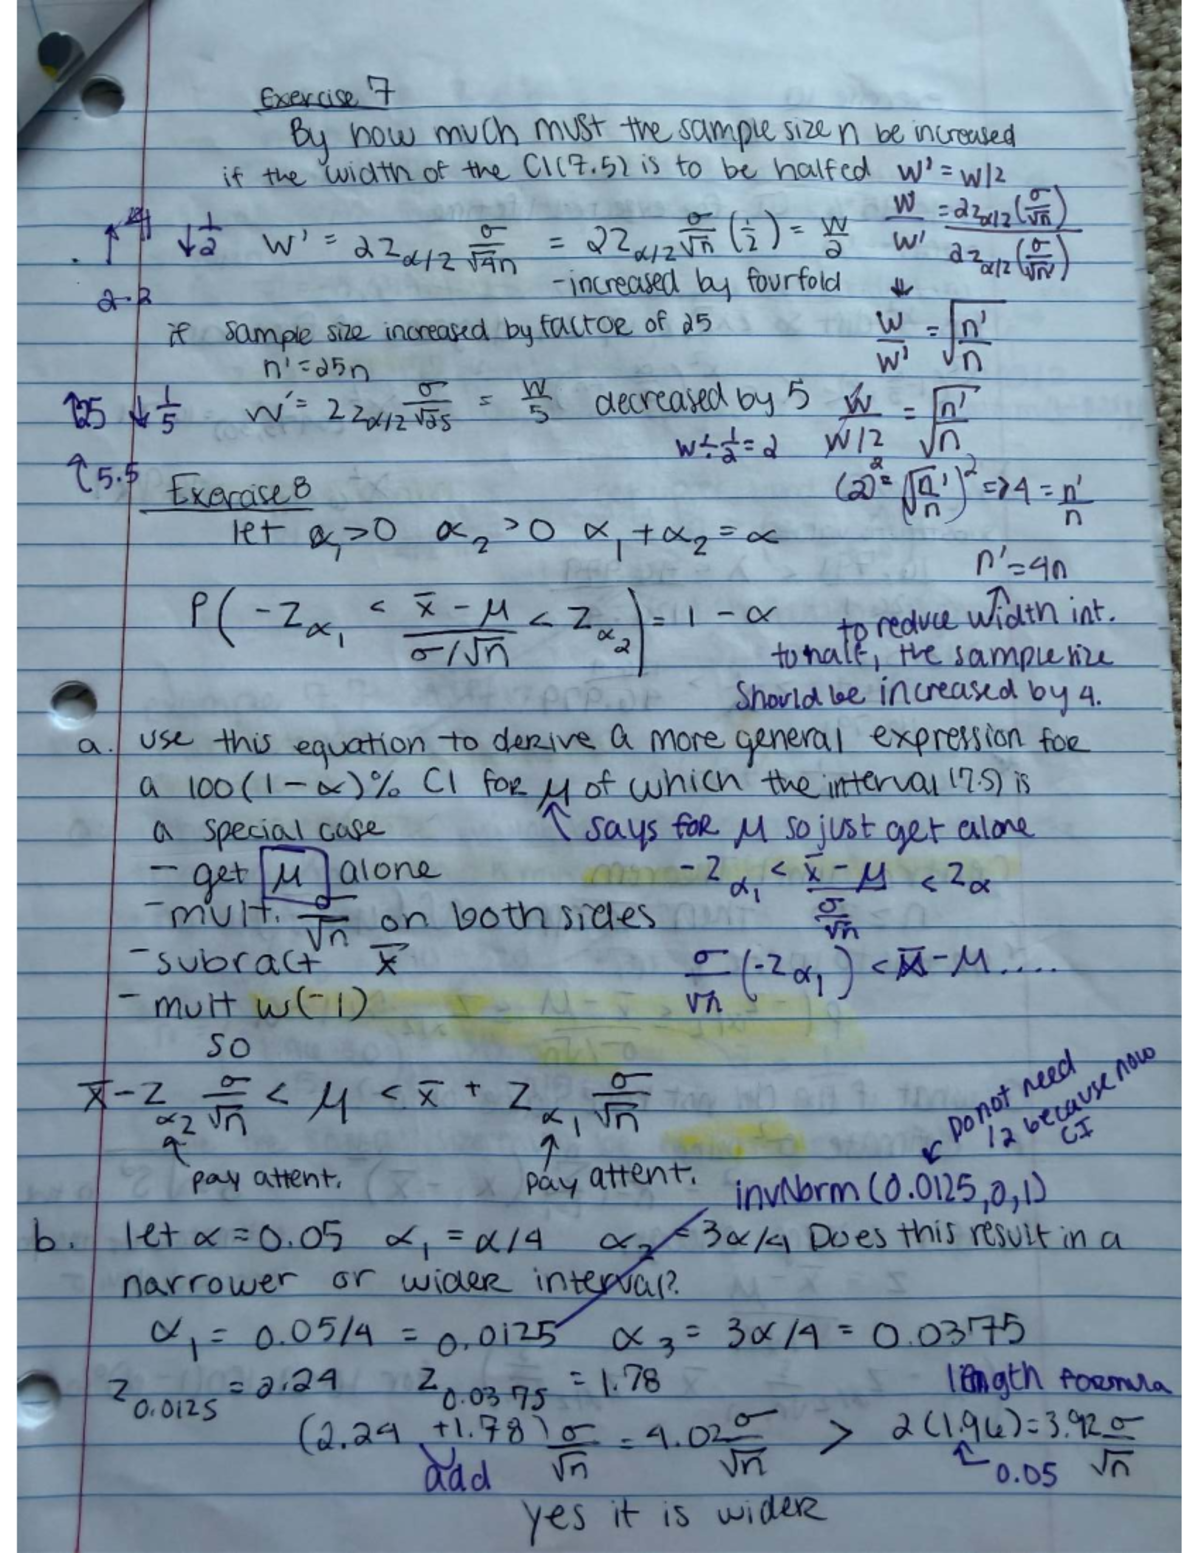 Exercise 7
By how much must the sample size n be increased
if the width of the CI (7.5) is to be halfed W' = W/2
↑ 4 ↓ 1/2 W' = 2Z_{α/2} σ/√4n = 2Z_{α/2} σ/√n (1/2) = W/2 W/W' = 2Z_{α/2}(σ/√n) / 2Z_{α/2}(σ/√n')
2·2
-increased by fourfold ↓
if sample size increased by factor of 25 W/W' = √(n'/n)
n' = 25n
↑25 ↓ 1/5 W' = 2Z_{α/2} σ/√25 = W/5 decreased by 5 W/(W/2) = √(n'/n)
W ÷ 1/2 = 2
↑5.5
(2)² = (√(n'/n))² => 4 = n'/n
Exercise 8
let α₁ > 0 α₂ > 0 α₁ + α₂ = α
n' = 4n
P( -Z_{α₁} < (x̄ - μ)/(σ/√n) < Z_{α₂} ) = 1 - α
to reduce width int.
to half, the sample size
should be increased by 4.
a. use this equation to derive a more general expression for
a 100(1-α)% CI for μ of which the interval (7.5) is
a special case
↑ says for μ so just get alone
- get μ alone
-Z_{α₁} < (x̄ - μ)/(σ/√n) < Zα
-mult. σ/√n on both sides
-subract x̄
σ/√n (-Z_{α₁}) < x̄ - μ....
- mult w(-1)
so
x̄ - Z_{α2} σ/√n < μ < x̄ + Z_{α₁} σ/√n
Do not need
/2 because now
CI
↑ pay attent. ↑ pay attent.
invNorm(0.0125,0,1)
b. let α = 0.05 α₁ = α/4 α₂ = 3α/4 Does this result in a
narrower or wider interval?
α₁ = 0.05/4 = 0.0125 α₃ = 3α/4 = 0.0375
Z_{0.0125} = 2.24 Z_{0.0375} = 1.78 length formula
(2.24 + 1.78) σ/√n = 4.02 σ/√n > 2(1.96) = 3.92 σ/√n
add
0.05
yes it is wider